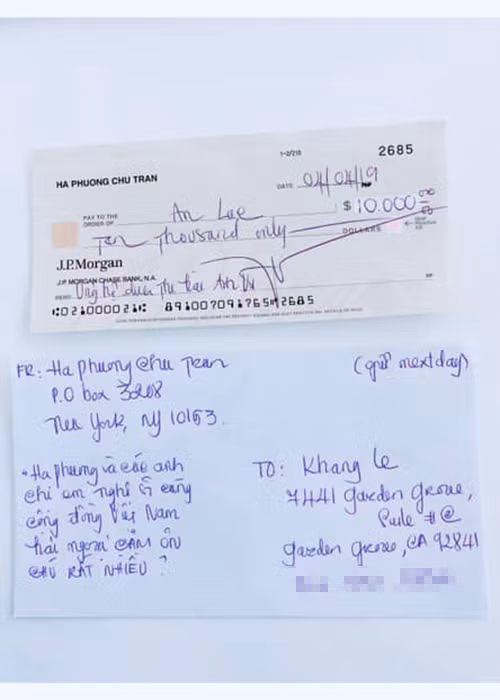 1-2/210
2685
HA PHUONG CHU TRAN
DATE 04/04/19
PAY TO THE
ORDER OF An Lac $ 10.000
Ten thousand only DOLLARS
J.P.Morgan
J.P. MORGAN CHASE BANK, N.A.
MEMO
⑆021000021⑆ 891007091765⑈2685
FR: Ha phuong Chu Tran
P.O box 3208
New York, NY 10163
(gửi nextday)
"Hà phương và các anh
chị em nghệ sĩ cùng
cộng đồng Việt Nam
hải ngoại CẢM ƠN
CHÚ RẤT NHIỀU
TO: Khang le
7441 garden grove,
garden grove, CA 92841